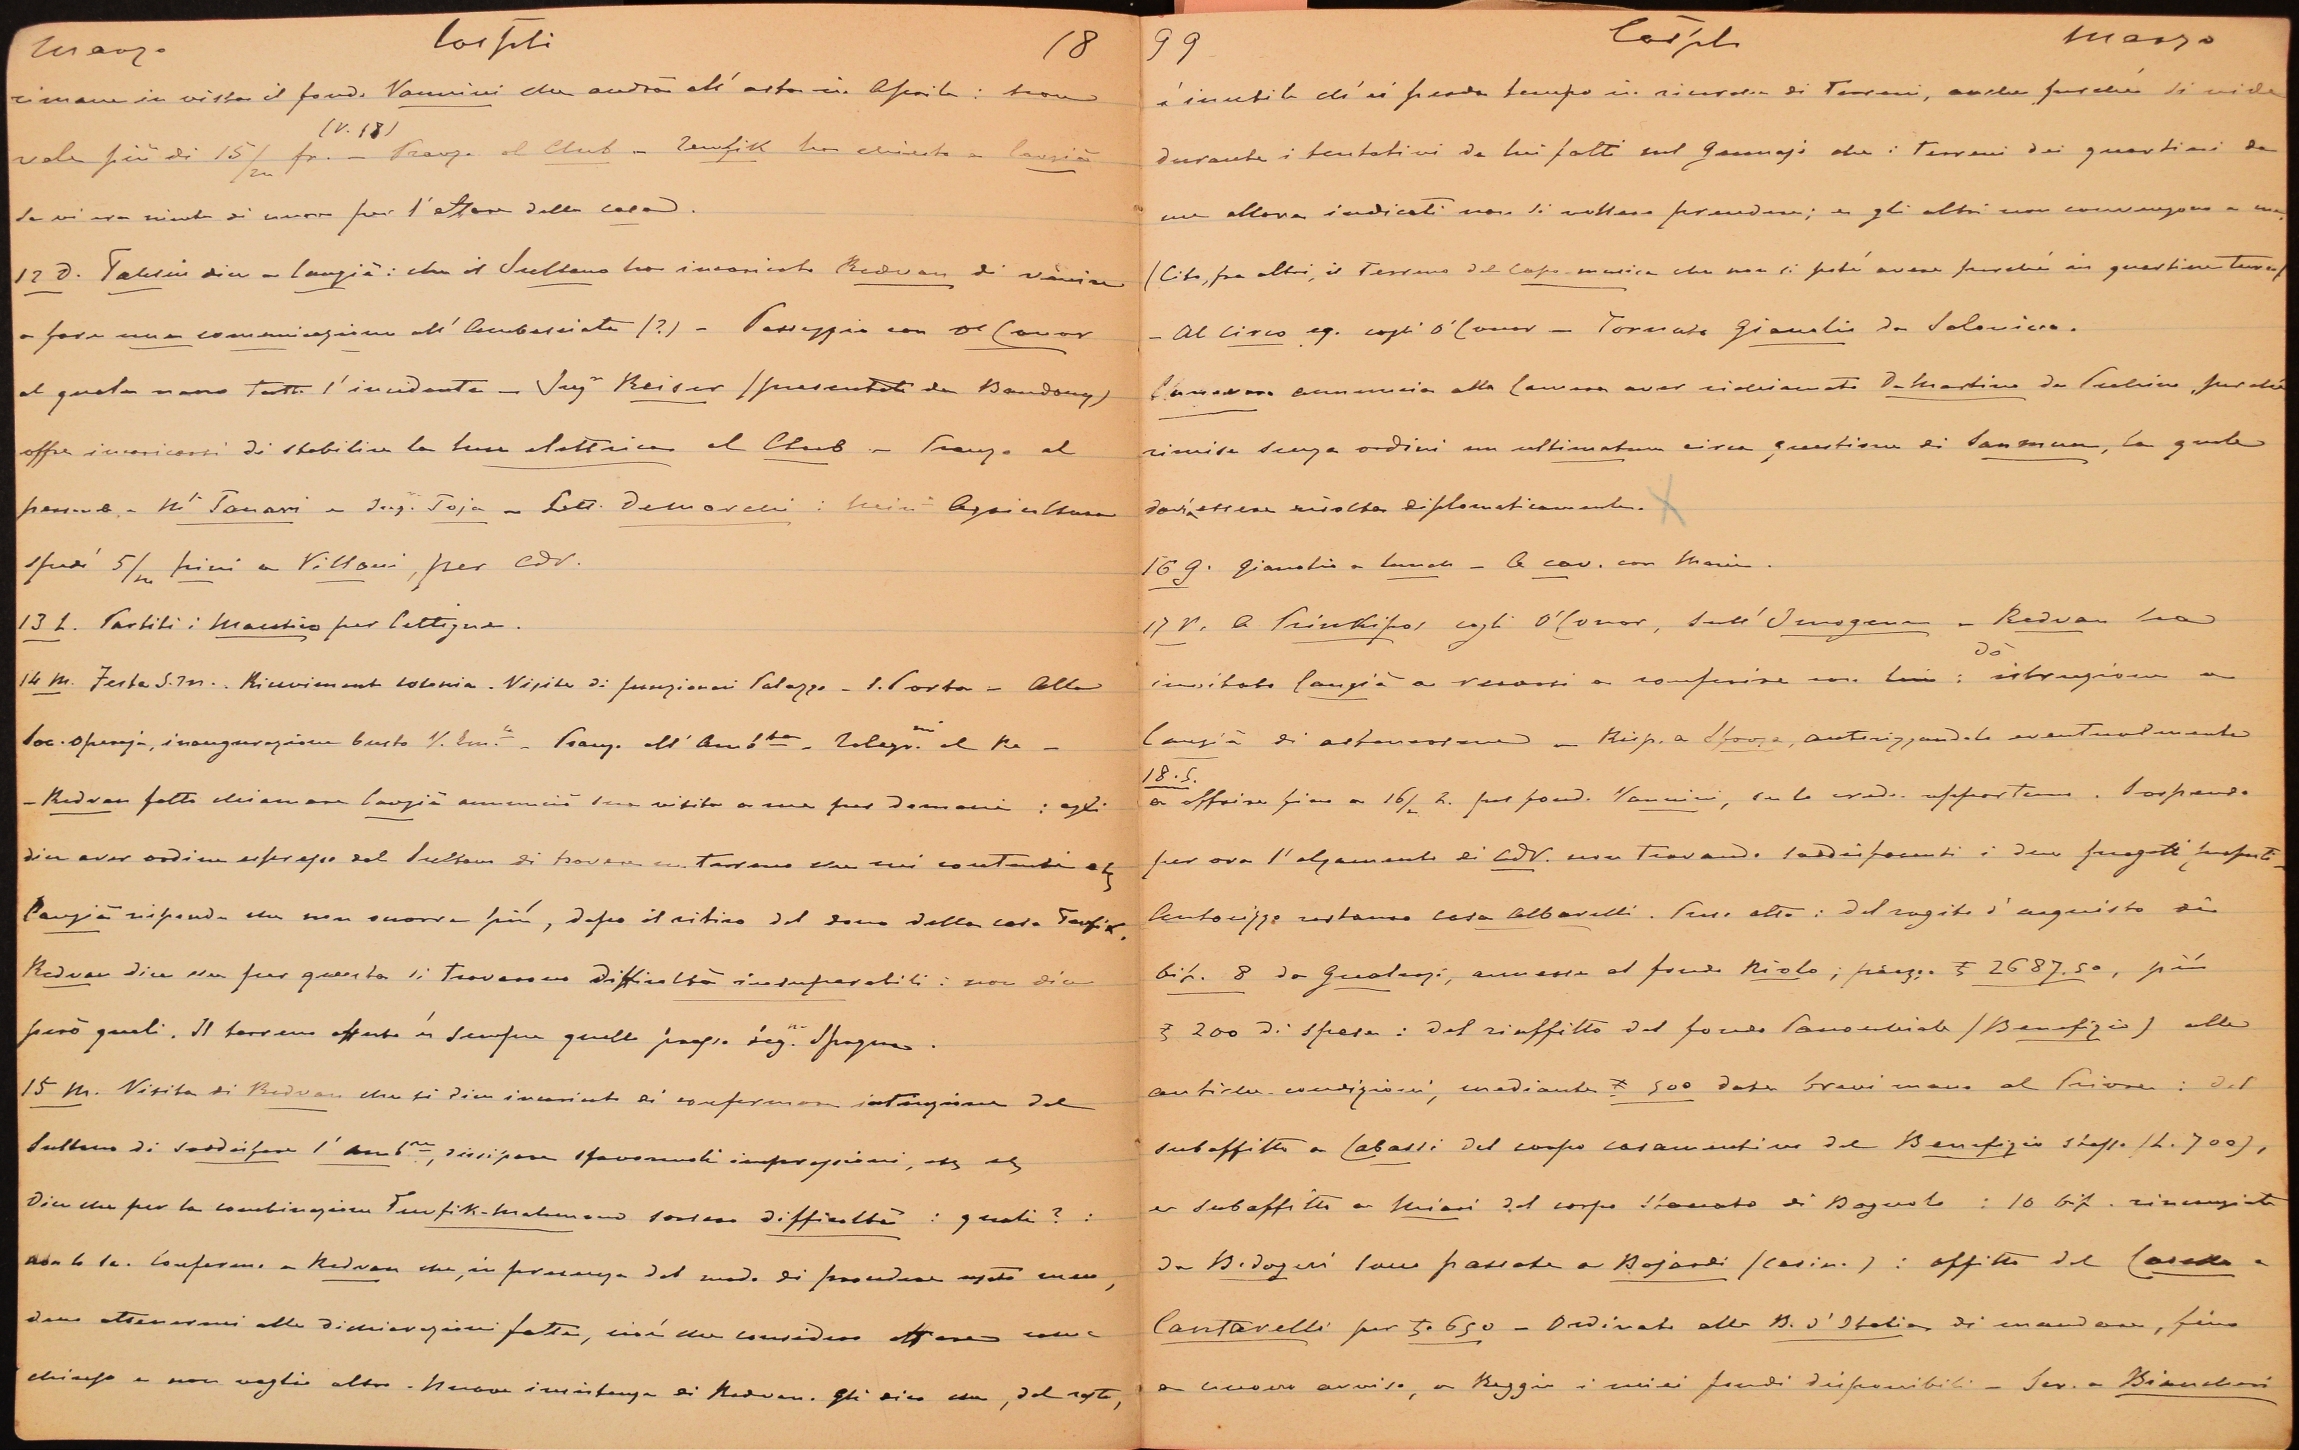 Marzo Cospli 18
rimane in vista il fondo Vannini che andrà all'asta in Aprile: non
(v. 18)
vale più di 15/m fr. – Pranzo al Club – Tewfik ha chiesto a Cangià
se vi era niente di nuovo per l'affare della casa.
12 D. Tahsin dice a Cangià: che il Sultano ha incaricato Redvan di venire
a fare una comunicazione all'Ambasciata (?) – Passeggio con O'Conor
al quale narro tutto l'incidente – Ing.r Reiser (presentato da Baudouy)
offre incaricarsi di stabilire la luce elettrica al Club – Pranzo al
personale – Mi Tanari – Ing. Toja – Lett. Demarchi: Agricoltura
spedì 5/m pini a Villani, per CdV.
13 L. Partiti i per Cettigne.
14 M. Festa S.M. Ricevimento colonia. Visite di funzionari Palazzo – S. Porta – Alla
Soc. operaja, inaugurazione busto V. Em.le – Pranzo all'Amb.ta – Telegr.mi al Re –
– Redvan fatto chiamare Cangià annunciò sua visita a me per domani: egli
dice aver ordine espresso dal Sultano di trovare un terreno che mi contenti etc
Cangià risponde che non occorre più, dopo il ritiro del dono della casa Tewfik.
Redvan dice che per questa si trovarono difficoltà insuperabili: non dice
però quali. Il terreno offerto è sempre quello presso leg.ne Spagna.
15 M. Visita di Redvan che si dice incaricato di confermare intenzione del
Sultano di soddisfare l'Amb.re, dissipare sfavorevoli impressioni, etc etc
Dice che per la combinazione Tewfik-Mahmoud sorsero difficoltà: quali?:
non lo sa. Confermo a Redvan che, in presenza del modo di procedere usato meco,
devo attenermi alle dichiarazioni fatte, cioè che considero affare come
chiuso e non voglio altro. Nuove insistenze di Redvan. Gli dico che, del resto,
99 Cospli Marzo
è inutile ch'ei perda tempo in ricerche di terreni, anche perché si vide
durante i tentativi da lui fatti nel Gennajo che i terreni dei quartieri da
me allora indicati non si vollero prendere; e gli altri non convengono a me.
(Cito, fra altri, il terreno del capo-musica che non si poté avere perché in quartiere turco)
– Al Circo eq. cogli O'Conor – Tornato Gianelia da Salonicco.
Canevaro annuncia alla Camera aver richiamato DeMartino da Pechino, perché
rimise senza ordini un ultimatum circa questione di Sanmun, la quale
dovrà essere risolta diplomaticamente.
16 G. Gianelia a lunch – A cav. con Maria.
17 V. A Prinkipos cogli O'Conor, sull'Imogene – Redvan ha
invitato Cangià a recarsi a conferire con lui: dò istruzione a
Cangià di astenersene – Risp. a Sforza, autorizzandolo eventualmente
18. S.
a offrire fino a 16/m L. per fondo Vannini, se lo crede opportuno. Sospendo
per ora l'alzamento di CdV. non trovando soddisfacenti i due progetti proposti –
Autorizzo restauro casa Albarelli. Preso atto: del rogito d'acquisto di
bif. 8 da Gualerzi, annessa al fondo Riolo; prezzo £ 2687.50, più
£ 200 di spese: del riaffitto del fondo Parrocchiale (Benefizio) alle
antiche condizioni, mediante £ 500 date brevi mano al Priore: del
subaffitto a Cabassi del corpo casamentivo del Benefizio stesso (L. 700),
e subaffitto a Miari del corpo staccato di Bagnolo: 10 bif. rinunziate
da Bedogni sono passate a Bojardi (casin.): affitto del Casello a
Cantarelli per £. 650 – Ordinato alla B. d'Italia di mandare, fino
a nuovo avviso, a Reggio i miei fondi disponibili – Scr. a Biancheri